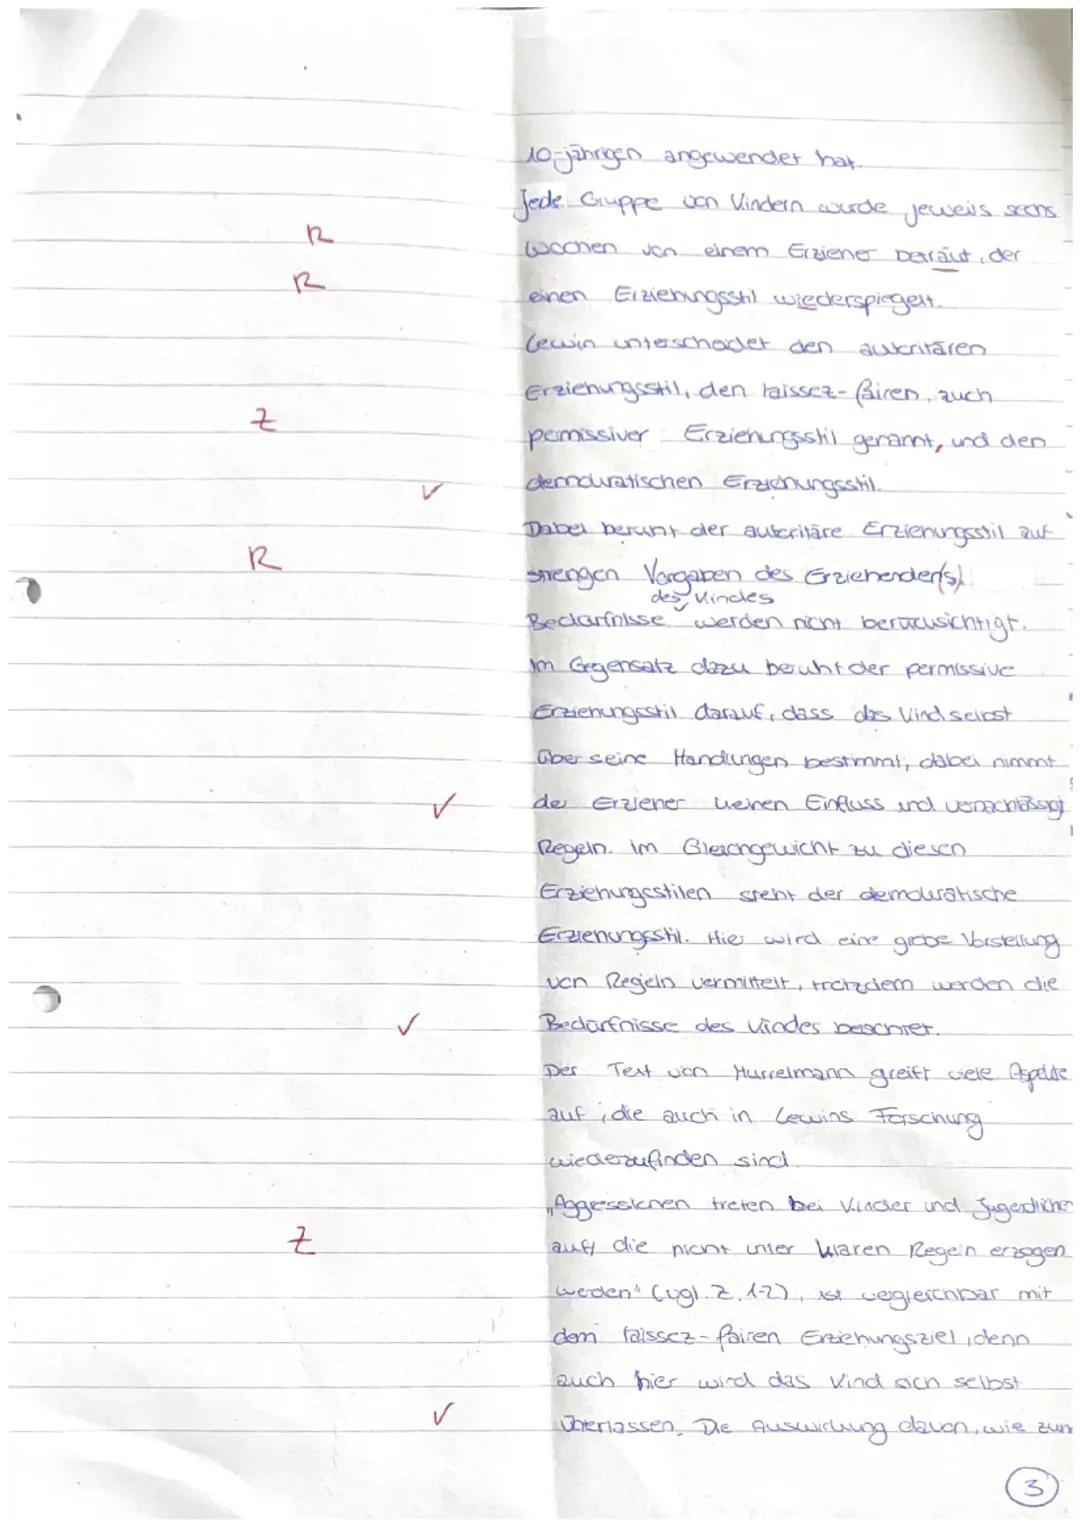 10-jährigen angewendet hat.
Jede Gruppe von Kindern wurde jeweils sechs
R
Wochen von einem Erzieher beträut, der
R
einen Erziehungsstil wiederspiegelt.
Lewin unterscheidet den autoritären
Erziehungsstil, den laissez-fairen, auch
Z
permissiver Erziehungsstil genannt, und den
✓
demokratischen Erziehungsstil.
Dabei beruht der autoritäre Erziehungsstil auf
R
strengen Vorgaben des Erziehender(s).
des Kindes
Bedürfnisse werden nicht berücksichtigt.
Im Gegensatz dazu beruht der permissive
Erziehungsstil darauf, dass das Kind selbst
über seine Handlungen bestimmt, dabei nimmt
✓
der Erzieher keinen Einfluss und vernachlässigt
Regeln. Im Gleichgewicht zu diesen
Erziehungsstilen steht der demokratische
Erziehungsstil. Hier wird eine grobe Vorstellung
von Regeln vermittelt, trotzdem werden die
✓
Bedürfnisse des Kindes beachtet.
Der Text von Hurrelmann greift viele Aspekte
auf, die auch in Lewins Forschung
wiederzufinden sind.
„Aggressionen treten bei Kinder und Jugendlicher
Z
auf, die nicht unter klaren Regeln erzogen
werden" (vgl. Z. 1-2), ist vergleichbar mit
dem laissez-fairen Erziehungsziel, denn
auch hier wird das Kind sich selbst
✓
überlassen. Die Auswirkung davon, wie zum
3